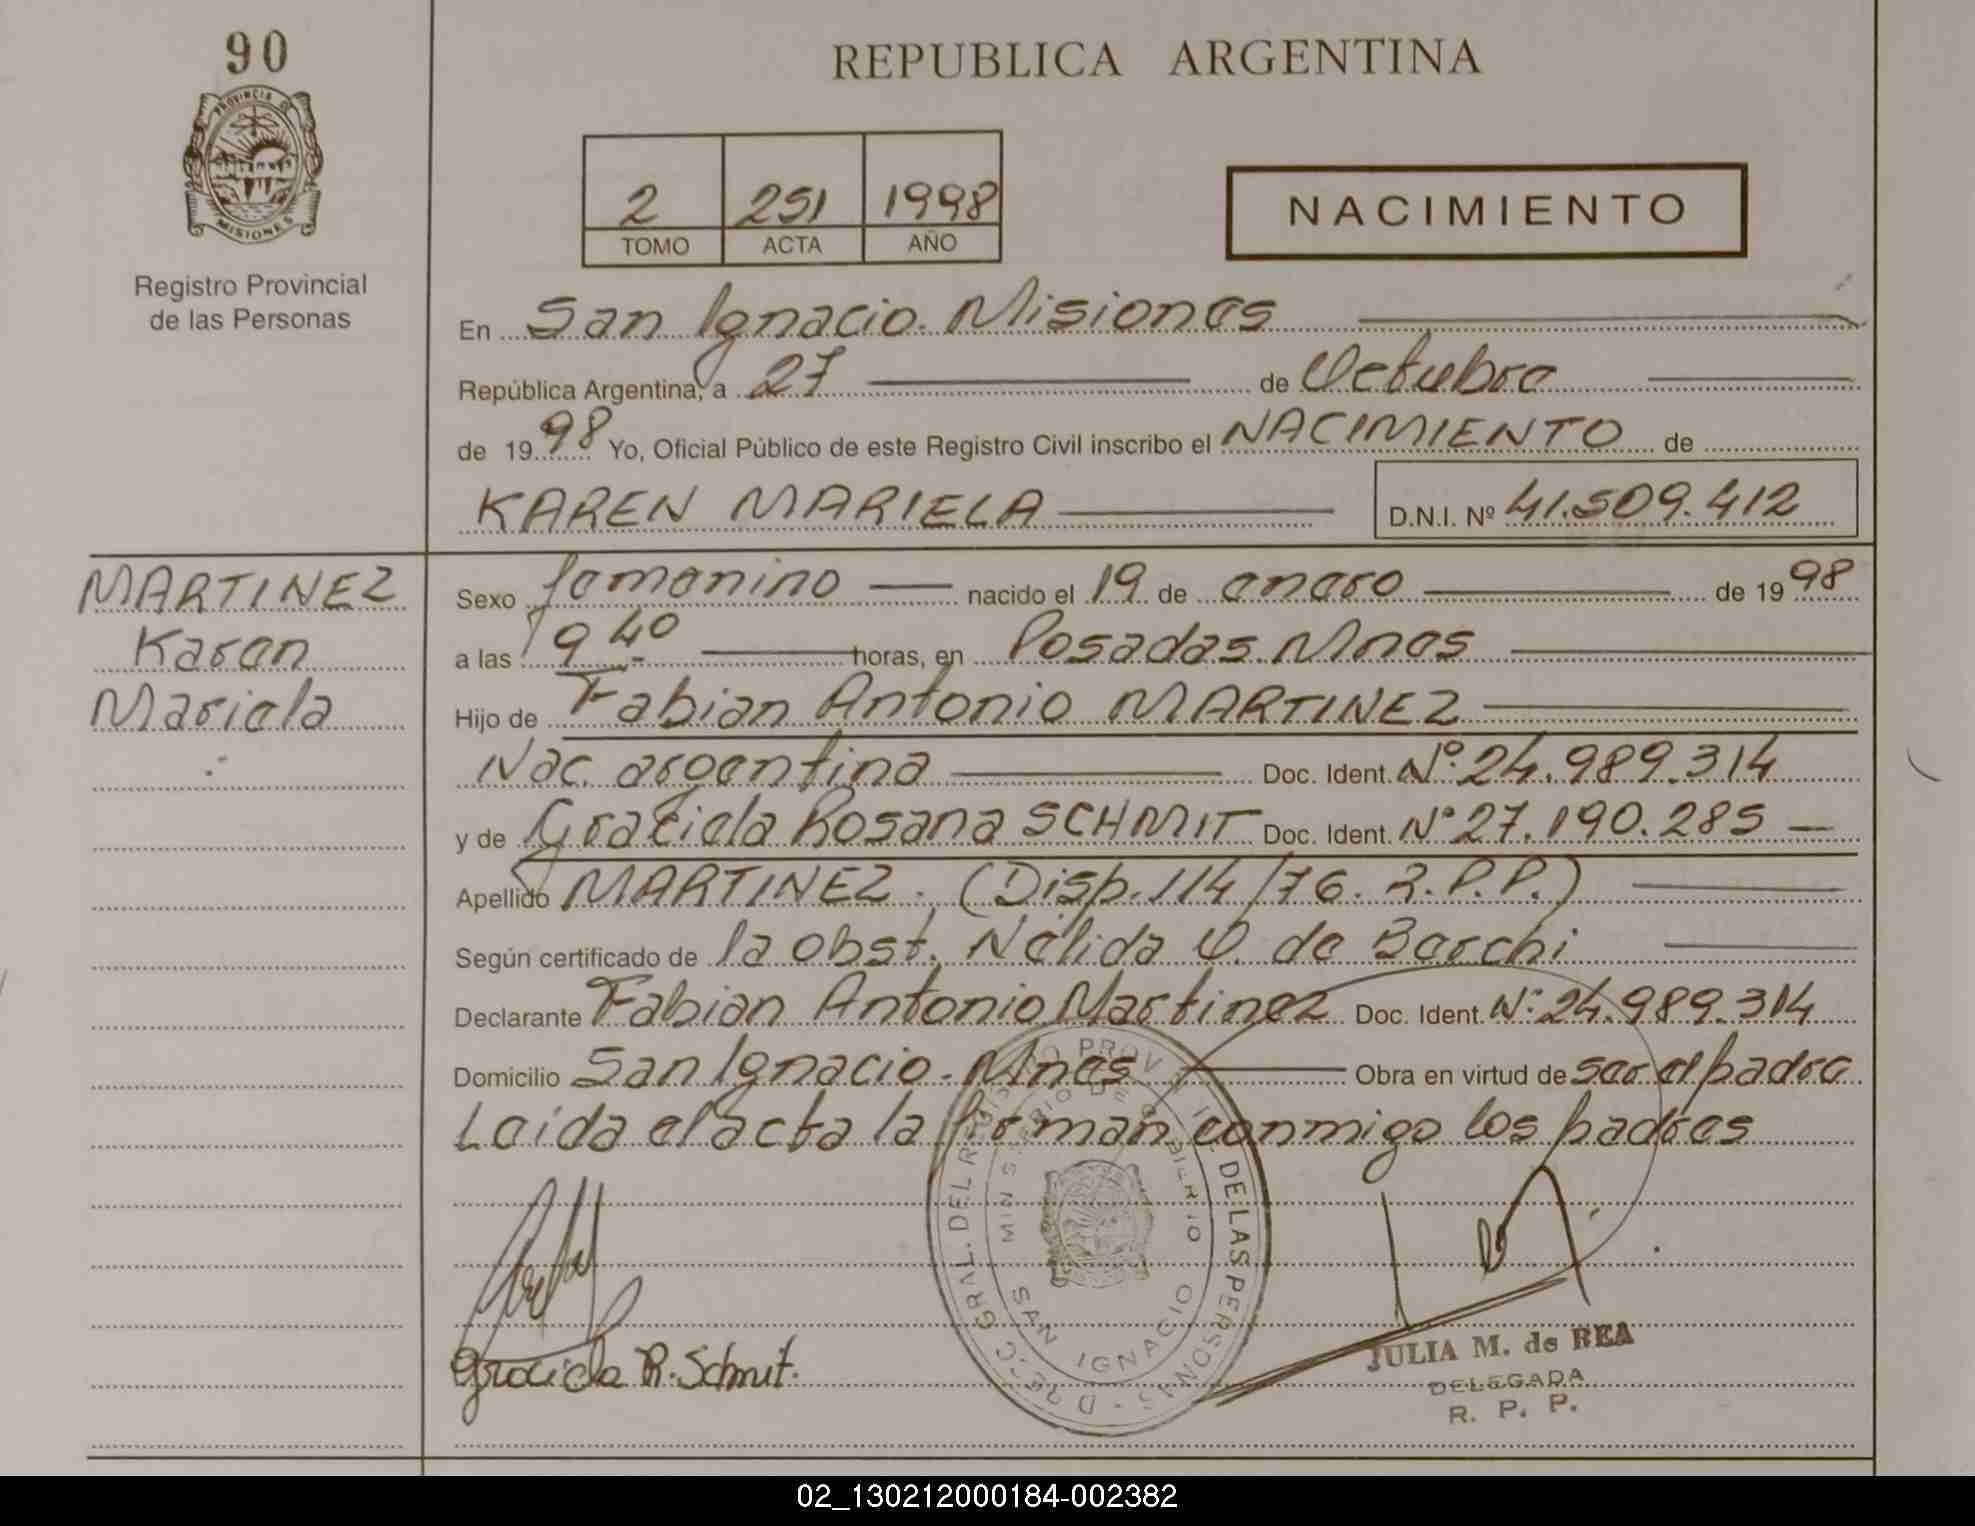 90
PROVINCIA D MISIONES
Registro Provincial
de las Personas
REPUBLICA ARGENTINA
2 251 1998
TOMO ACTA AÑO
NACIMIENTO
En San Ignacio. Misiones
República Argentina, a 27 de Octubre
de 1998 Yo, Oficial Público de este Registro Civil inscribo el NACIMIENTO de
KAREN MARIELA D.N.I. Nº 41.509.412
MARTINEZ
Karen
Mariela
Sexo femenino nacido el 19 de enero de 1998
a las 9 40 horas, en Posadas. Mnes
Hijo de Fabian Antonio MARTINEZ
Nac. argentina Doc. Ident. Nº 24.989.314
y de Graciela Rosana SCHMIT Doc. Ident. Nº 27.190.285
Apellido MARTINEZ. (Disp. 114/76. R.P.P.)
Según certificado de la obst. Nélida O. de Berchi
Declarante Fabian Antonio Martinez Doc. Ident. Nº 24.989.314
Domicilio San Ignacio - Mnes Obra en virtud de ser el padre
Leida el acta la firman conmigo los padres
Graciela R. Schmit.
GRAL. DEL REGISTRO PROV DE LAS PERSONAS
MINISTERIO DE GOBIERNO
SAN IGNACIO
JULIA M. de REA
DELEGADA
R. P. P.
02_130212000184-002382